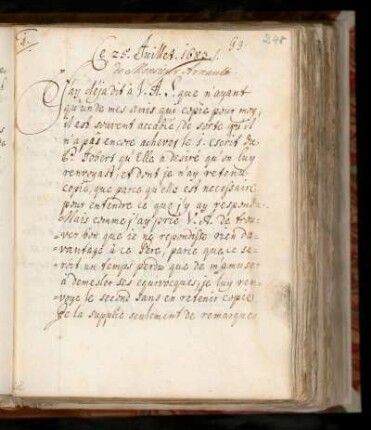 Ce 25. Juillet. 1683.
93.
248
de Monsieur Arnauld.
J'ay deja dit à V. A. que n'ayant
qu'un de mes amis qui copie pour moy,
il est souvent accablé, de sorte qu'il
n'a pas encore achevé le 1. escrit du
P. Jobert qu'Elle a desiré qu'on luy
renvoyast, et dont je n'ay retenu
copie, que parce qu'elle est necessaire
pour entendre ce que j'y ay respondu.
Mais comme j'ay prié V. A. de trou-
ver bon que je ne repondisse rien da-
vantage à ce Pere, parce que ce se-
roit un temps perdu que de m'amuser
à demesler ses equivocques, je luy ren-
voye le second sans en retenir copie.
Je la supplie seulement de remarquer